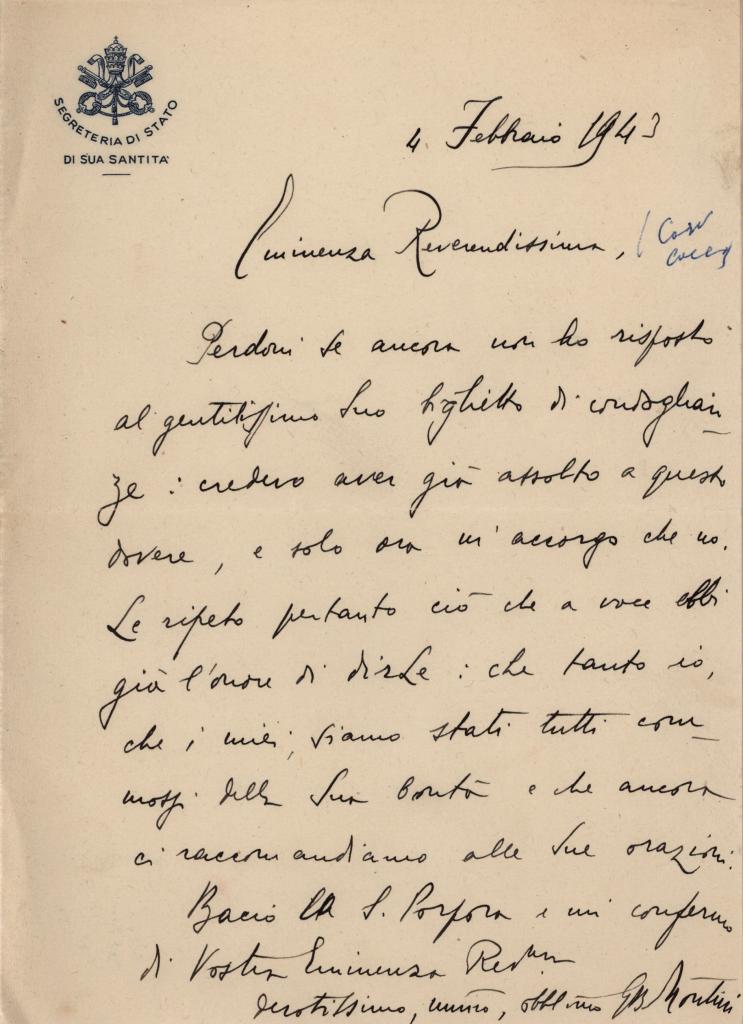 SEGRETERIA DI STATO
DI SUA SANTITA'
4 Febbraio 1943
Eminenza Reverendissima,
Perdoni se ancora non ho risposto
al gentilissimo Suo biglietto di condoglian-
ze : credevo aver già assolto a questo
dovere, e solo ora m'accorgo che no.
Le ripeto pertanto ciò che a voce ebbi
già l'onore di dirLe : che tanto io,
che i miei, siamo stati tutti com-
mossi della Sua bontà e che ancora
ci raccomandiamo alle Sue orazioni.
Bacio la S. Porpora e mi confermo
di Vostra Eminenza Rev.ma
devotissimo, obbl.mo GB Montini